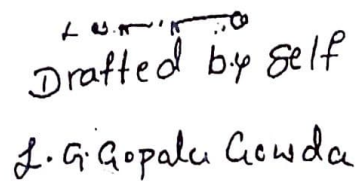 Drafted by self
L. G. Gopala Gowda